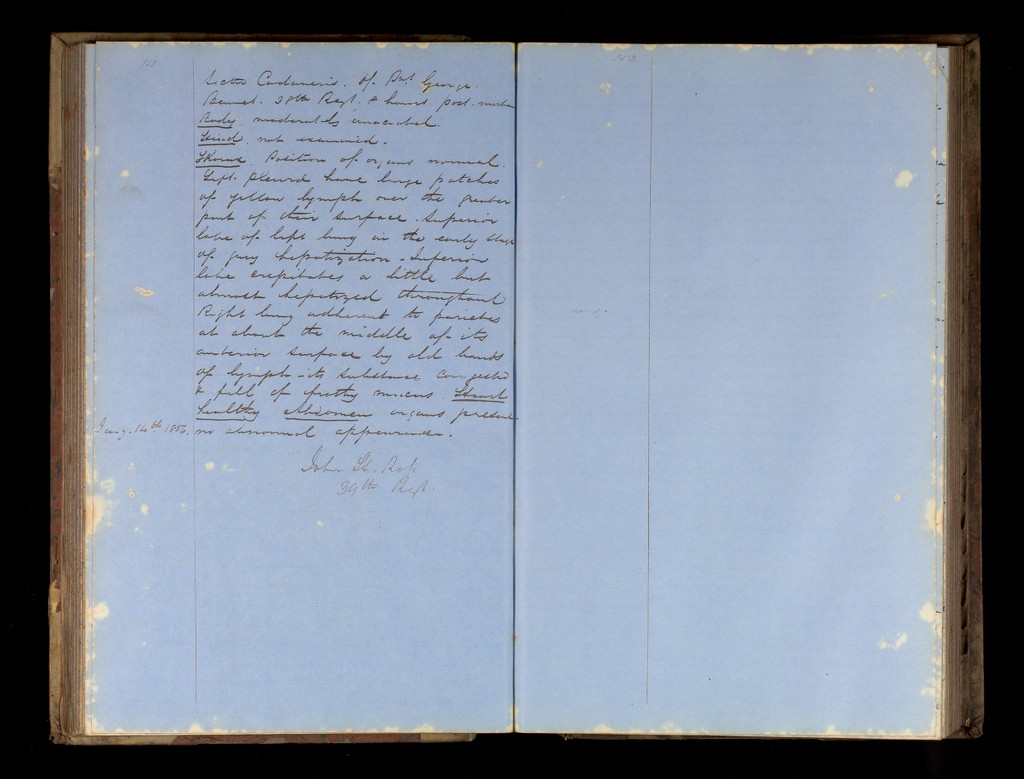 Sectio Cadaveris. of Pvt. George
Bennet. 38th Regt. 8 hours post-mortem
Body moderately emaciated.
Head not examined.
Thorax Position of organs normal.
Left pleura have large patches
of yellow lymph over the greater
part of their surface. Superior
lobe of left lung in the early stage
of grey hepatization. Inferior
lobe crepitates a little but
almost hepatized throughout
Right lung adherent to parietes
at about the middle of its
anterior surface by old bands
of lymph - its substance congested
& full of frothy mucus. Heart
healthy Abdomen organs present
Jany. 14th 1856. no abnormal appearance.
John H.
39th Regt.